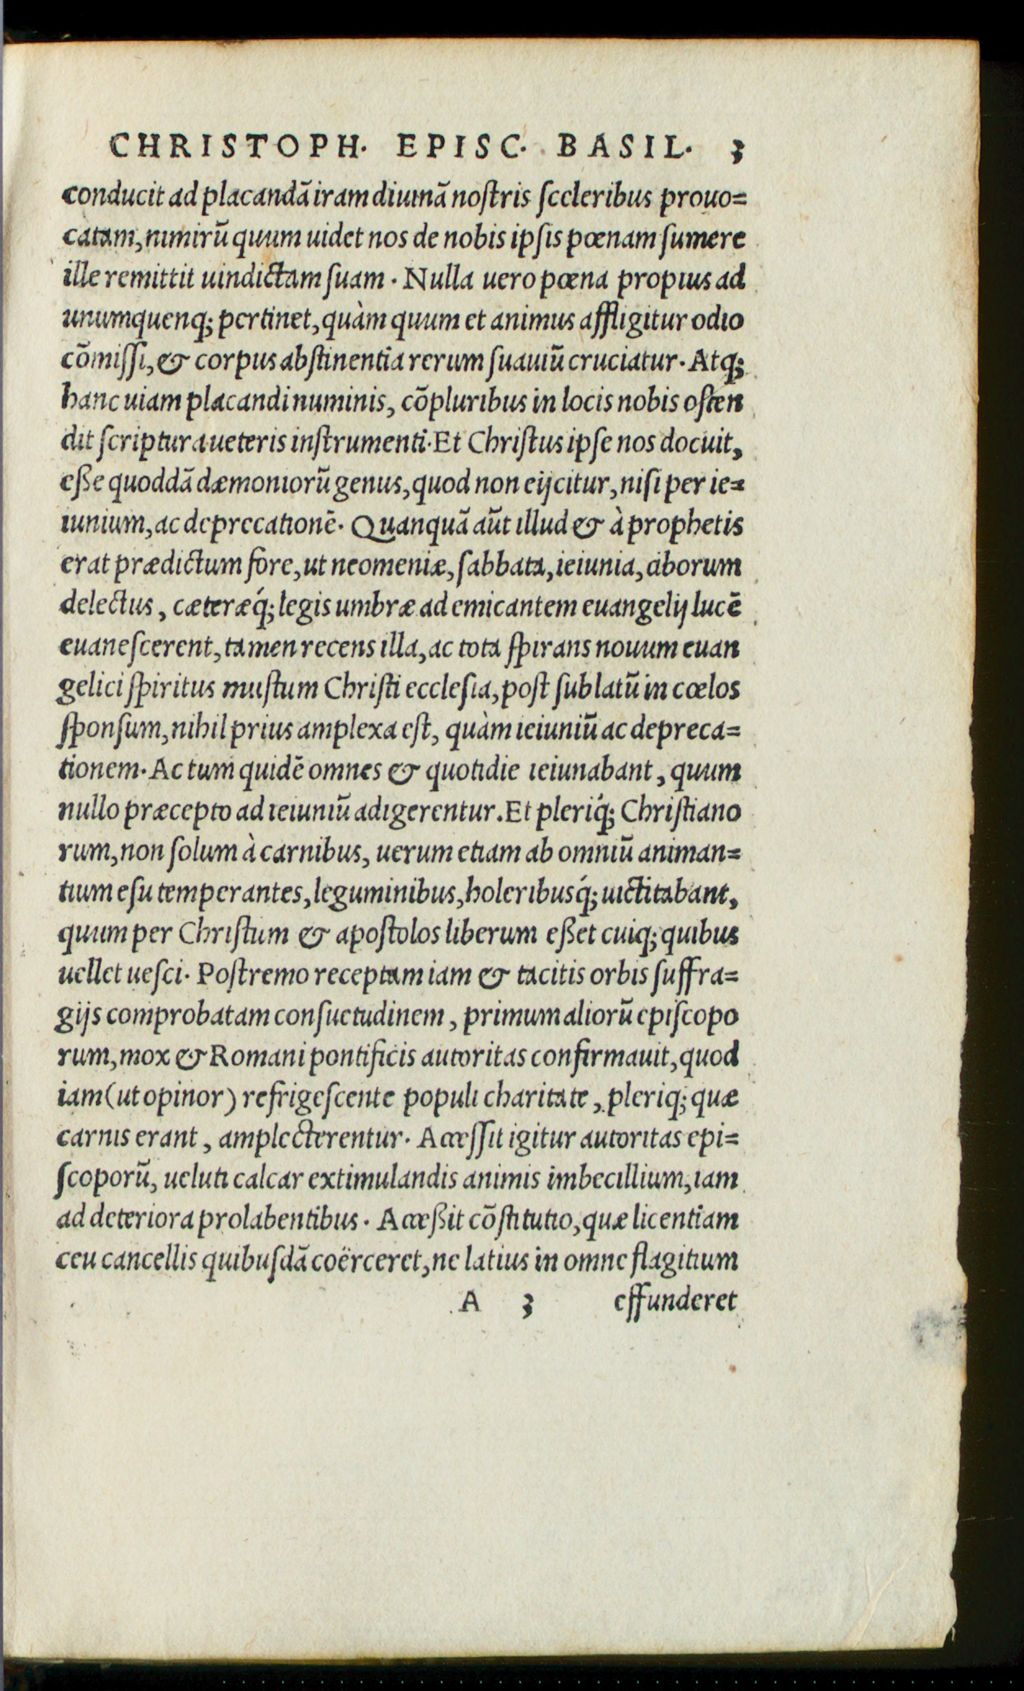 CHRISTOPH. EPISC. BASIL. 3
conducit ad placandã iram diuinã noſtris ſceleribus prouo=
catam, nimirũ quum uidet nos de nobis ipſis pœnam ſumere
ille remittit uindictam ſuam. Nulla uero pœna propius ad
unumquenq; pertinet, quàm quum et animus affligitur odio
cõmiſſi, & corpus abſtinentia rerum ſuauiũ cruciatur. Atq;
hanc uiam placandi numinis, cõpluribus in locis nobis oſten
dit ſcriptura ueteris inſtrumenti. Et Chriſtus ipſe nos docuit,
eße quoddã dæmoniorũ genus, quod non eijcitur, niſi per ie=
iunium, ac deprecationẽ. Quanquã aũt illud & à prophetis
erat prædictum fore, ut neomeniæ, ſabbata, ieiunia, ciborum
delectus, cæteræq́; legis umbræ ad emicantem euangelij lucẽ
euaneſcerent, tamen recens illa, ac tota ſpirans nouum euan
gelici ſpiritus muſtum Chriſti eccleſia, poſt ſublatũ in cœlos
ſponſum, nihil prius amplexa eſt, quàm ieiuniũ ac depreca=
tionem. Ac tum quidẽ omnes & quotidie ieiunabant, quum
nullo præcepto ad ieiuniũ adigerentur. Et pleriq́; Chriſtiano
rum, non ſolum à carnibus, uerum etiam ab omniũ animan=
tium eſu temperantes, leguminibus, holeribusq́; uictitabant,
quum per Chriſtum & apoſtolos liberum eßet cuiq; quibus
uellet ueſci. Poſtremo receptam iam & tacitis orbis ſuffra=
gijs comprobatam conſuetudinem, primum aliorũ epiſcopo
rum, mox & Romani pontificis autoritas confirmauit, quod
iam (ut opinor) refrigeſcente populi charitate, pleriq; quæ
carnis erant, amplecterentur. Acceſſit igitur autoritas epi=
ſcoporũ, ueluti calcar extimulandis animis imbecillium, iam
ad deteriora prolabentibus. Acceßit cõſtitutio, quæ licentiam
ceu cancellis quibuſdã coërceret, ne latius in omne flagitium
A 3 effunderet